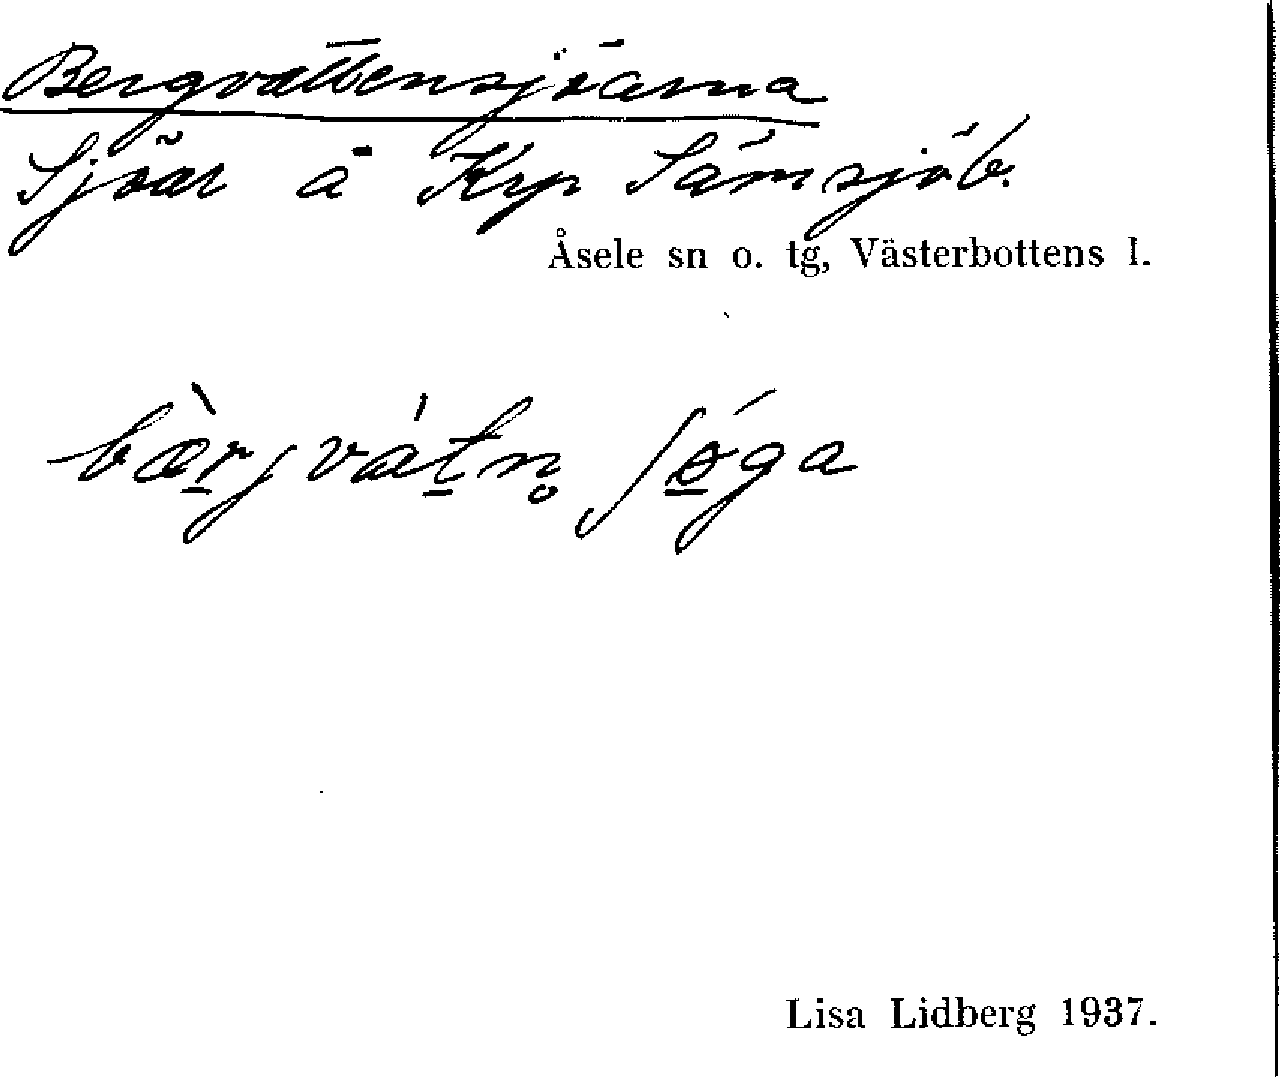 Bergvattensjöarna
Sjöar å Krp Sämsjöb.
Åsele sn o. tg, Västerbottens l.
bæ̀rjvátn̥ ʃǿga
Lisa Lidberg 1937.